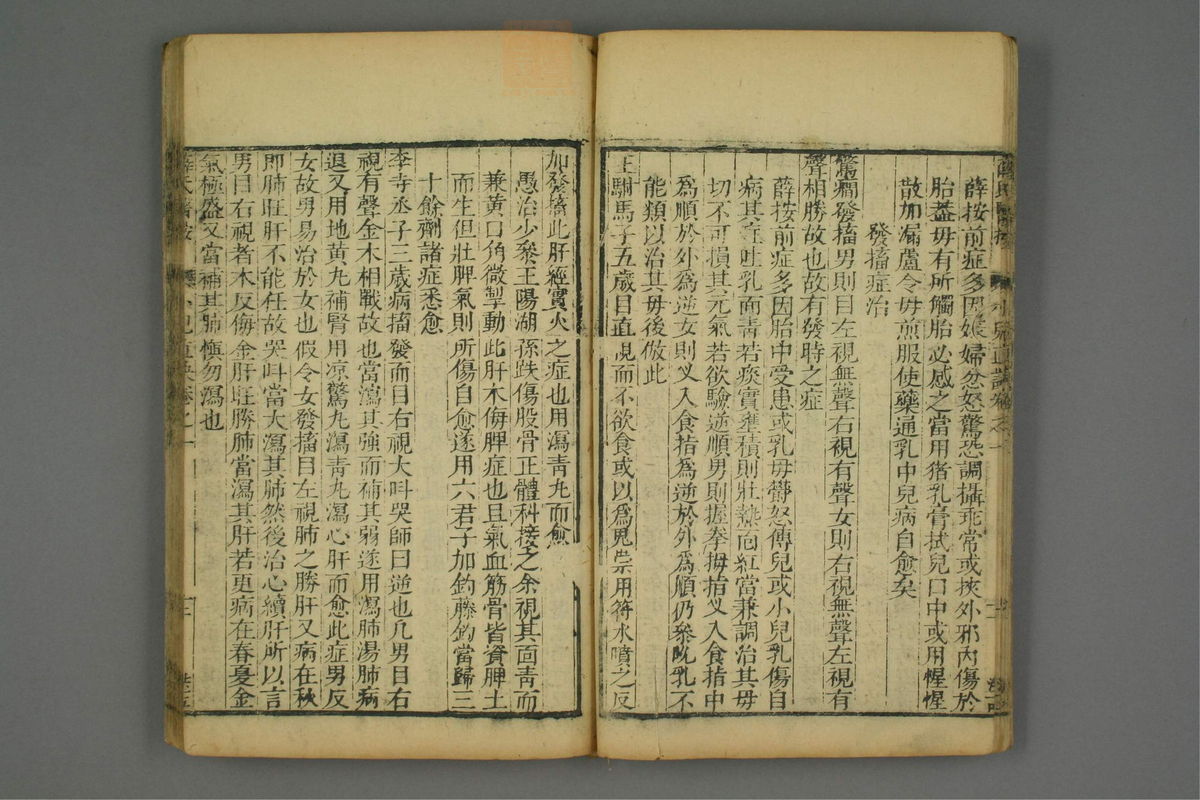 薛按前症多因妊婦忿怒驚恐調攝乖常或挾外邪内傷於
胎蓋母有所觸胎必感之當用猪乳膏拭兒口中或用惺惺
散加漏蘆令母煎服使藥通乳中兒病自愈矣
發搐症治
驚癇發搐男則目左視無聲右視有聲女則右視無聲左視有
聲相勝故也故有發時之症
薛按前症多因胎中受患或乳母鬱怒傳兒或小兒乳傷自
病其症吐乳面青若痰實壅積則壯熱面紅當兼調治其母
切不可損其元氣若欲驗逆順男則握拳拇指叉入食指中
爲順於外爲逆女則叉入食指爲逆於外爲順仍參吮乳不
能類以治其母後倣此
王駙馬子五歲目直視而不欲食或以爲鬼祟用符水噴之反
加發搐此肝經實火之症也用瀉青丸而愈
愚治少參王陽湖孫跌傷股骨正體科接之余視其面靑而
兼黄口角微掣動此肝木侮脾症也且氣血筋骨皆資脾土
而生但壯脾氣則所傷自愈遂用六君子加鈎藤鈎當歸三
十餘劑諸症悉愈
李寺丞子三歲病搐發而目右視大呌哭師曰逆也凡男目右
視有聲金木相戰故也當瀉其強而補其弱遂用瀉肺湯肺病
退又用地黄丸補腎用凉驚丸瀉青丸瀉心肝而愈此症男反
女故男易治於女也假令女發搐目左視肺之勝肝又病在秋
即肺旺肝不能任故哭呌當大瀉其肺然後治心續肝所以言
男目右視者木反侮金肝旺勝肺當瀉其肝若更病在春夏金
氣極盛又當補其肺愼勿瀉也